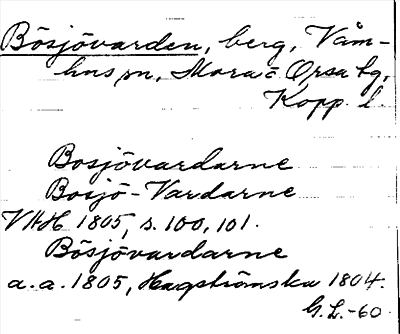 Bösjövarden, berg, Våm-
hus sn, Mora o. Orsa tg,
Kopp. l.
Bosjövardarne
Bosjö-Vardarne
VAH 1805, s. 100, 101.
Bösjövardarne
a.a. 1805, Hagströmska 1804.
G.L.-60